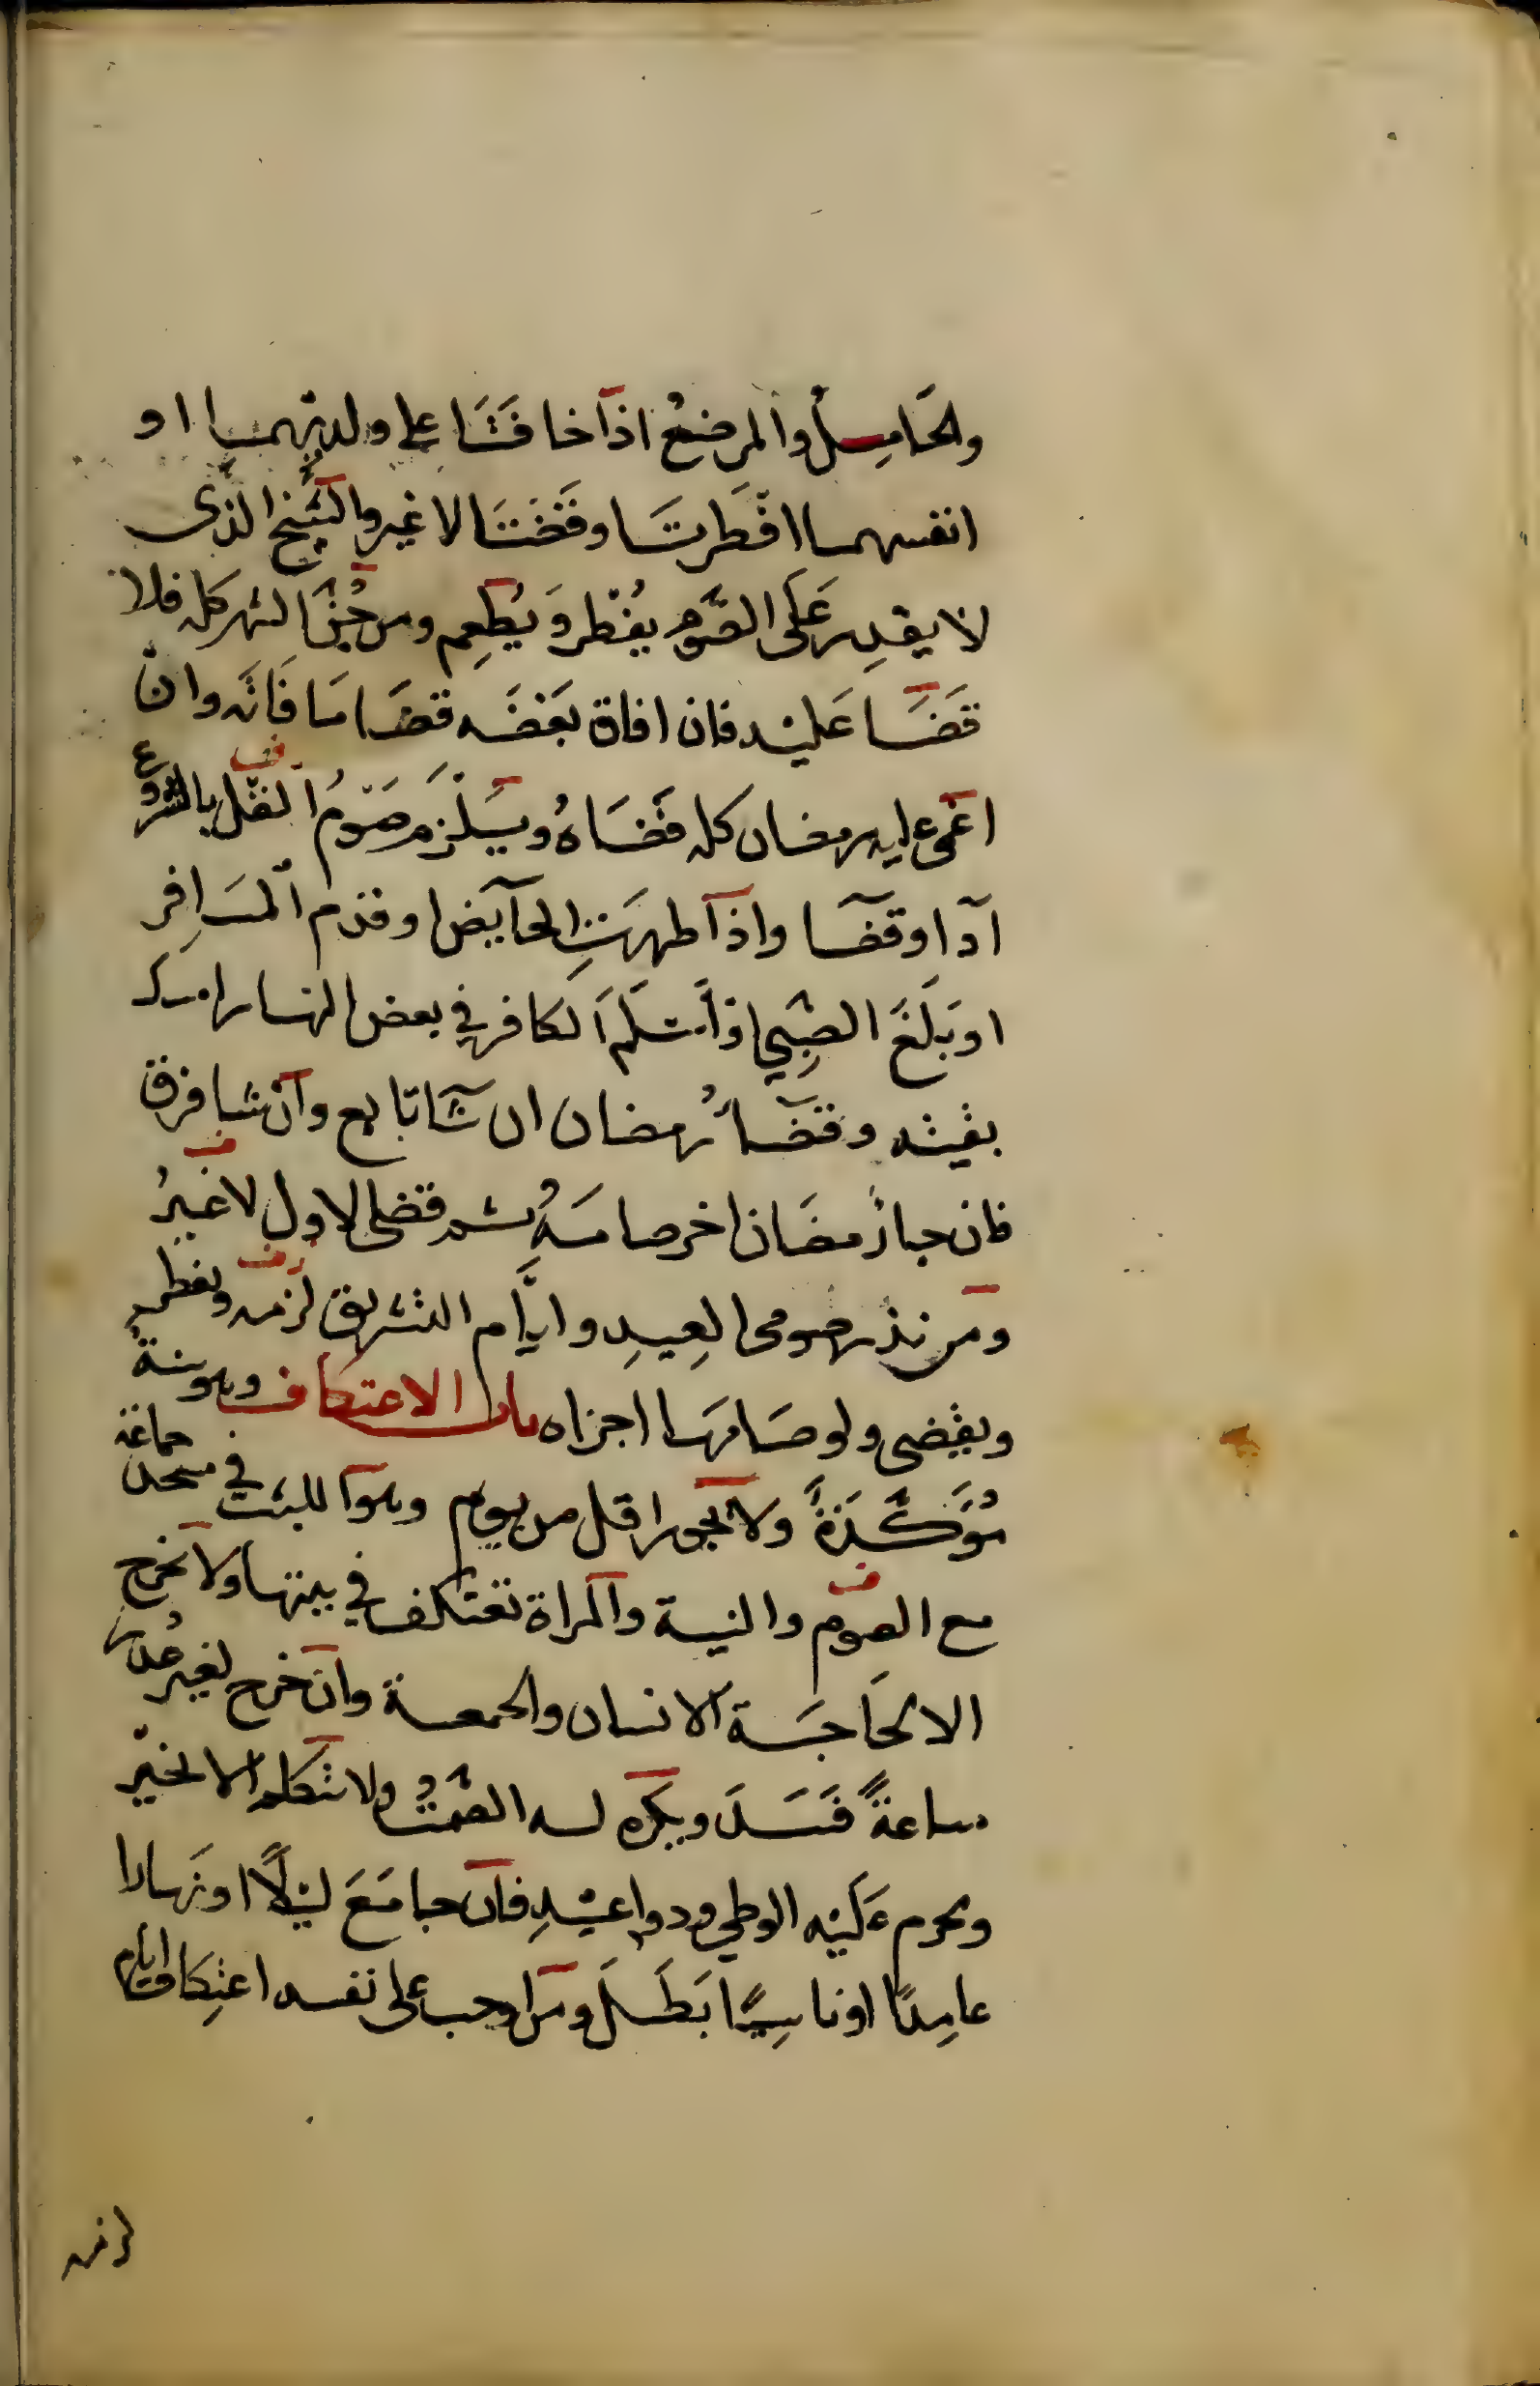 والحَامِلُ والمرضعُ اذا خافَتَا على ولديهما او
انفسهما افطرتَا وقضَتَا لا غير والشَّيخ الذى
لا يقدِر عَلَى الصَّوم يفْطر وَيُطعِم ومن جُنَّ الشهر كله فلا
قَضَا عَليْه فان افاق بَعْضَه قضَا مَا فَاتَه وانْ
اغمى عليه رمضان كله قَضَاهُ ويَلْزم صَوْمُ النفْل بالشروع
آدا وقضا واذا طهرَتِ الحايض او قدم المسَافِر
او بَلَغَ الصَّبِي او اسْلَمَ الكافر في بعض النهار امسك
بقيته وقضاُ رمضان ان شَا تابع وان شا فرق
فان جا رَمضَان اخر صامَهُ ثم قضى الاول لا غيرُ
ومن نذر صومى العِيدِ وايَّام التشريق لزمه ويفطر
ويقضى ولو صَامَها اجزاه باب الاعتكاف وهو سنةٌ
مُؤَكَّدَةٌ ولا يجوز اقل من يوم وهو اللبث في مسجد جماعة
مع الصوم والنية والمراة تعتكف في بيتها ولا يخرج
الا لحَاجَة الانسان والجمعة وان خرج لغير عُذرٍ
ساعةً فَسَدَ ويكره له الصَّمْتُ ولا يتكلم الا بخيْر
ويحرم عَليْه الوطي ودواعيْهِ فان جامَعَ ليْلًا او نَهارا
عامِدًا او ناسِيًا بَطَلَ ومن اوجب على نفسه اعتِكاف ايام
لزمه